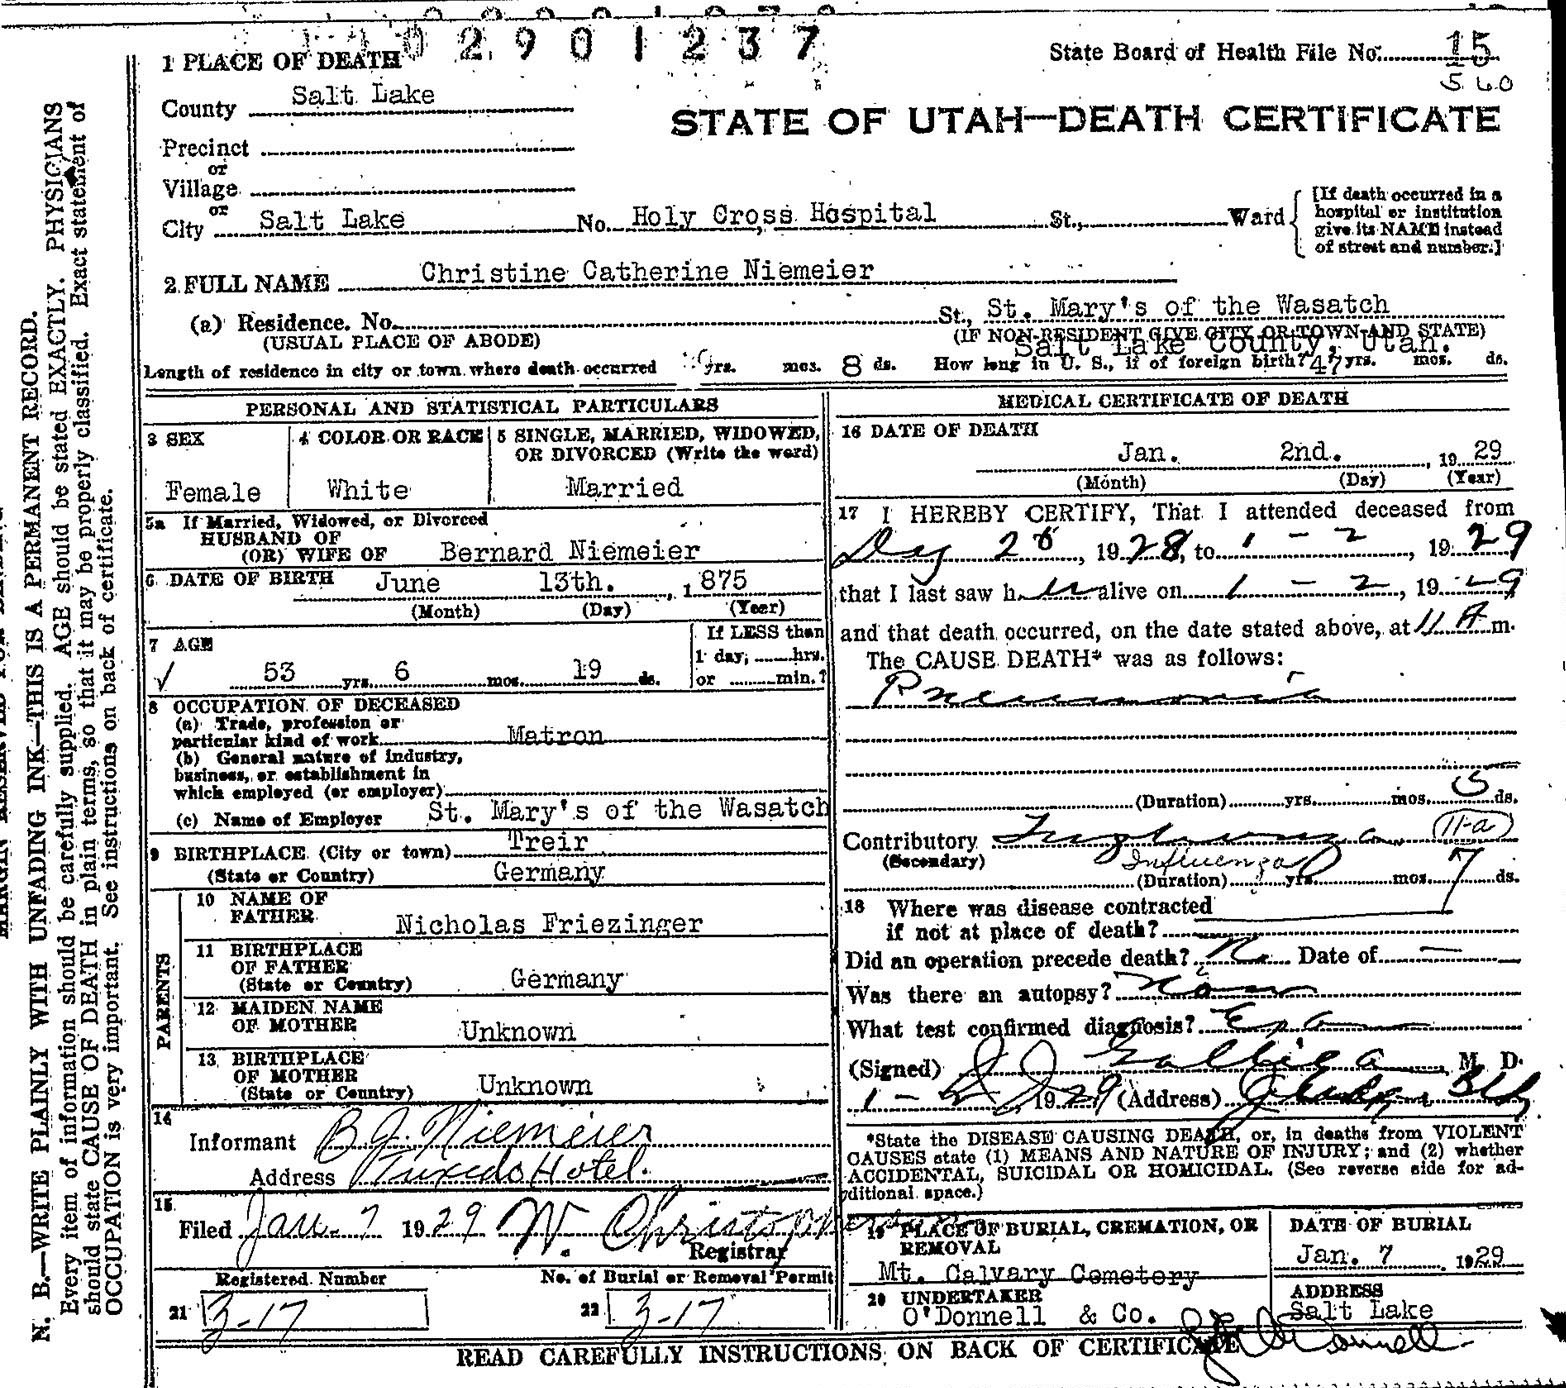 02901237
1 PLACE OF DEATH
State Board of Health File No. 15
560
County Salt Lake
STATE OF UTAH—DEATH CERTIFICATE
Precinct
or
Village
or
City Salt Lake No. Holy Cross Hospital St., Ward
[If death occurred in a
hospital or institution
give its NAME instead
of street and number.]
2 FULL NAME Christine Catherine Niemeier
(a) Residence. No. St., St. Mary's of the Wasatch
(USUAL PLACE OF ABODE) (IF NON-RESIDENT GIVE CITY OR TOWN AND STATE)
Salt Lake County, Utah.
Length of residence in city or town where death occurred yrs. mos. 8 ds. How long in U. S., if of foreign birth? 47 yrs. mos. ds.
PERSONAL AND STATISTICAL PARTICULARS
3 SEX
Female
4 COLOR OR RACE
White
5 SINGLE, MARRIED, WIDOWED,
OR DIVORCED (Write the word)
Married
5a If Married, Widowed, or Divorced
HUSBAND OF
(OR) WIFE OF Bernard Niemeier
6 DATE OF BIRTH June 13th. , 1875
(Month) (Day) (Year)
7 AGE
53 yrs. 6 mos. 19 ds.
If LESS than
1 day, hrs.
or min.?
8 OCCUPATION OF DECEASED
(a) Trade, profession or
particular kind of work Matron
(b) General nature of industry,
business, or establishment in
which employed (or employer)
(c) Name of Employer St. Mary's of the Wasatch
9 BIRTHPLACE (City or town) Treir
(State or Country) Germany
PARENTS
10 NAME OF
FATHER Nicholas Friezinger
11 BIRTHPLACE
OF FATHER
(State or Country) Germany
12 MAIDEN NAME
OF MOTHER Unknown
13 BIRTHPLACE
OF MOTHER
(State or Country) Unknown
14
Informant B.J. Niemeier
Address Tuxedo Hotel.
15
Filed Jan. 7 1929 W. Christopherson
Registrar
Registered Number
21 3-17
No. of Burial or Removal Permit
22 3-17
MEDICAL CERTIFICATE OF DEATH
16 DATE OF DEATH
Jan. 2nd. , 1929
(Month) (Day) (Year)
17 I HEREBY CERTIFY, That I attended deceased from
28, 1928, to 1 - 2, 1929
that I last saw her alive on 1 - 2, 1929
and that death occurred, on the date stated above, at 11 A m.
The CAUSE DEATH* was as follows:
Pneumonia
(Duration) yrs. mos. 5 ds.
Contributory Influenza 11-a
(Secondary) Influenza
(Duration) yrs. mos. 7 ds.
18 Where was disease contracted
if not at place of death?
Did an operation precede death? No Date of —
Was there an autopsy?
What test confirmed diagnosis?
(Signed) M. D.
1 - 2 1929 (Address)
*State the DISEASE CAUSING DEATH, or, in deaths from VIOLENT
CAUSES state (1) MEANS AND NATURE OF INJURY; and (2) whether
ACCIDENTAL, SUICIDAL OR HOMICIDAL. (See reverse side for ad-
ditional space.)
19 PLACE OF BURIAL, CREMATION, OR
REMOVAL
Mt. Calvary Cemetery
DATE OF BURIAL
Jan. 7 1929
20 UNDERTAKER
O'Donnell & Co.
ADDRESS
Salt Lake
O'Donnell
READ CAREFULLY INSTRUCTIONS ON BACK OF CERTIFICATE
N. B.—WRITE PLAINLY WITH UNFADING INK—THIS IS A PERMANENT RECORD.
Every item of information should be carefully supplied. AGE should be stated EXACTLY. PHYSICIANS
should state CAUSE OF DEATH in plain terms, so that it may be properly classified. Exact statement of
OCCUPATION is very important. See instructions on back of certificate.